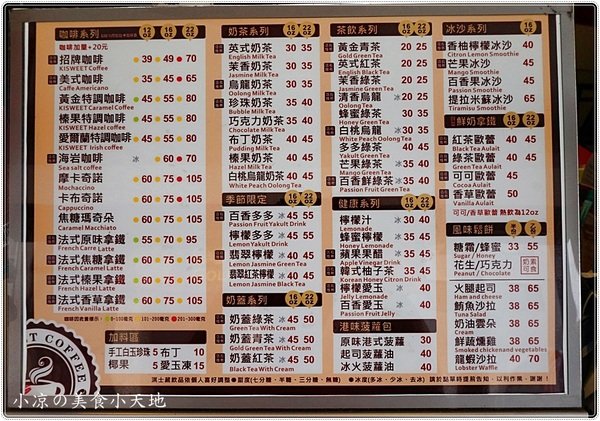 咖啡系列 12oz 16oz 22oz
咖啡加量+20元
招牌咖啡 39 49 70
KISWEET Coffee
美式咖啡 35 45 65
Caffe Americano
黃金特調咖啡 45 55 80
KISWEET Caramel Coffee
榛果特調咖啡 45 55 80
KISWEET Hazel coffee
愛爾蘭特調咖啡 45 55 80
KISWEET Irish coffee
海岩咖啡 冰 60 70
Sea salt coffee
摩卡奇諾 60 75 105
Mochaccino
卡布奇諾 60 75 105
Cappuccino
焦糖瑪奇朵 60 75 105
Caramel Macchiato
法式原味拿鐵 55 70 95
French Carre Latte
法式焦糖拿鐵 60 75 105
French Caramel Latte
法式榛果拿鐵 60 75 105
French Hazel Latte
法式香草拿鐵 60 75 105
French Vanilla Latte
加料區
手工白玉珍珠 5 布丁 10
椰果 5 愛玉凍 15
奶茶系列 16oz 22oz
英式奶茶 30 35
English Milk Tea
茉香奶茶 30 35
Jasmine Milk Tea
烏龍奶茶 30 35
Oolong Milk Tea
珍珠奶茶 35 40
Bubble Milk Tea
巧克力奶茶 35 40
Chocolate Milk Tea
布丁奶茶 40 45
Pudding Milk Tea
榛果奶茶 40 45
Hazel Milk Tea
白桃烏龍奶茶 40 45
White Peach Oolong Tea
季節限定 16oz 22oz
百香多多 冰 45 55
Passion Yakult Drink
檸檬多多 冰 45 55
Lemon Yakult Drink
翡翠檸檬 冰 40 45
Lemon Jasmine Green Tea
翡翠紅茶檸檬 冰 40 45
Lemon Jasmine Black Tea
奶蓋系列 16oz 22oz
奶蓋綠茶 冰 45 50
Green Tea With Cream
奶蓋青茶 冰 45 50
Gold Green Tea With Cream
奶蓋紅茶 冰 45 50
Black Tea With Cream
茶飲系列 16oz 22oz
黃金青茶 20 25
Gold Green Tea
英式紅茶 20 25
English Black Tea
茉香綠茶 20 25
Jasmine Green Tea
清香烏龍 冰 20 25
Oolong Tea
蜂蜜綠茶 30 35
Honey Green Tea
白桃烏龍 冰 30 35
White Peach Oolong Tea
多多綠茶 冰 40 45
Yakult Green Tea
芒果綠茶 冰 30 35
Mango Green Tea
百香鮮綠茶 冰 35 40
Passion Fruit Green Tea
健康系列 16oz 22oz
檸檬汁 冰 30 40
Lemonade
蜂蜜檸檬 冰 35 45
Honey Lemonade
蘋果果醋 冰 35 45
Apple Vinegar Drink
韓式柚子茶 35 45
Korean Honey Citron Drink
檸檬愛玉 冰 35 40
Jelly Lemonade
百香愛玉 冰 35 40
Passion Fruit Jelly
港味菠蘿包
原味港式菠蘿 30
起司菠蘿油 40
冰火菠蘿油 40
冰沙系列 16oz
香柚檸檬冰沙 40
Citron Lemon Smoothie
芒果冰沙 45
Mango Smoothie
百香果冰沙 45
Passion Smoothie
提拉米蘇冰沙 65
Tiramisu Smoothie
鮮奶拿鐵 16oz 22oz
紅茶歐蕾 40 50
Black Tea Aulait
綠茶歐蕾 40 50
Green Tea Aulait
可可歐蕾 45 55
Cocoa Aulait
香草歐蕾 50 60
Vanilla Aulait
可可/香草歐蕾 熱飲為12oz
風味鬆餅
糖霜/蜂蜜 33 55
Sugar / Honey
花生/巧克力 奶素可食
Peanut / Chocolate
火腿起司 38 65
Ham and cheese
鮪魚沙拉 38 65
Tuna Salad
奶油雲朵 38 65
Cream
鮮蔬燻雞 38 65
Smoked chicken and vegetables
龍蝦沙拉 40 70
Lobster Waffle
淇士麗飲品依個人喜好調整●甜度(七分糖、半糖、三分糖、無糖) ●冰度(多冰、少冰、去冰) 請於點單時提前告知,以利作業,謝謝!
小凉の美食小天地